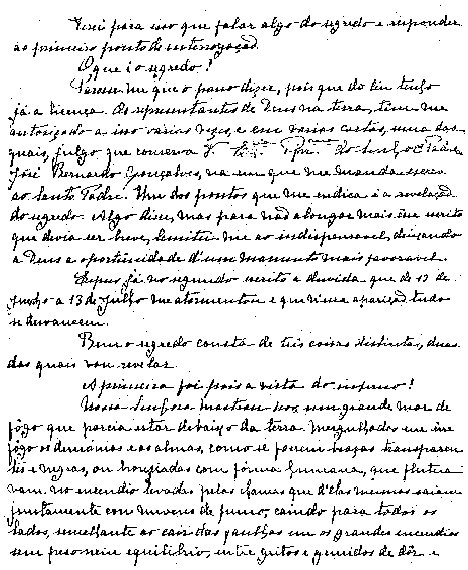 Terei para isso que falar algo do segredo e responder
ao primeiro ponto de interrogação.
O que é o segredo?
Parece-me que o posso dizer, pois que do Céu tenho
já a licença. Os representantes de Deus na terra, tem-me
autorizado a isso varias vezes, e em varias cartas, uma das
quais, julgo que conserva V. Ex.cia Rev.ma do Senhor Padre
José Bernardo Gonçalves, na em que me manda escrever
ao Santo Padre. Um dos pontos que me indica é a revelação
do segredo. Algo disse, mas para não alongar mais esse escrito
que devia ser breve, limitei-me ao indispensavel, deixando
a Deus a oportunidade d'um momento mais favoravel.
Expus já no segundo escrito a duvida que de 13 de
Junho a 13 de Julho me atormentou e que n'essa aparição tudo
se desvaneceu.
Bem o segredo consta de tres coisas distintas, duas
das quais vou revelar.
A primeira foi pois a vista do inferno!
Nossa Senhora mostrou-nos um grande mar de
fôgo que parecia estar debaixo da terra. Mergulhados em êsse
fôgo os demónios e as almas, como se fossem brasas transparen-
tes e negras, ou bronziadas com fórma humana, que flutua-
vam no encendio levadas pelas chamas que d'elas mesmas saiam
juntamente com nuvens de fumo, caindo para todos os
lados, semelhante ao cair das faulhas em os grandes encendios
sem peso nem equilibrio, entre gritos e gemidos de dôr e